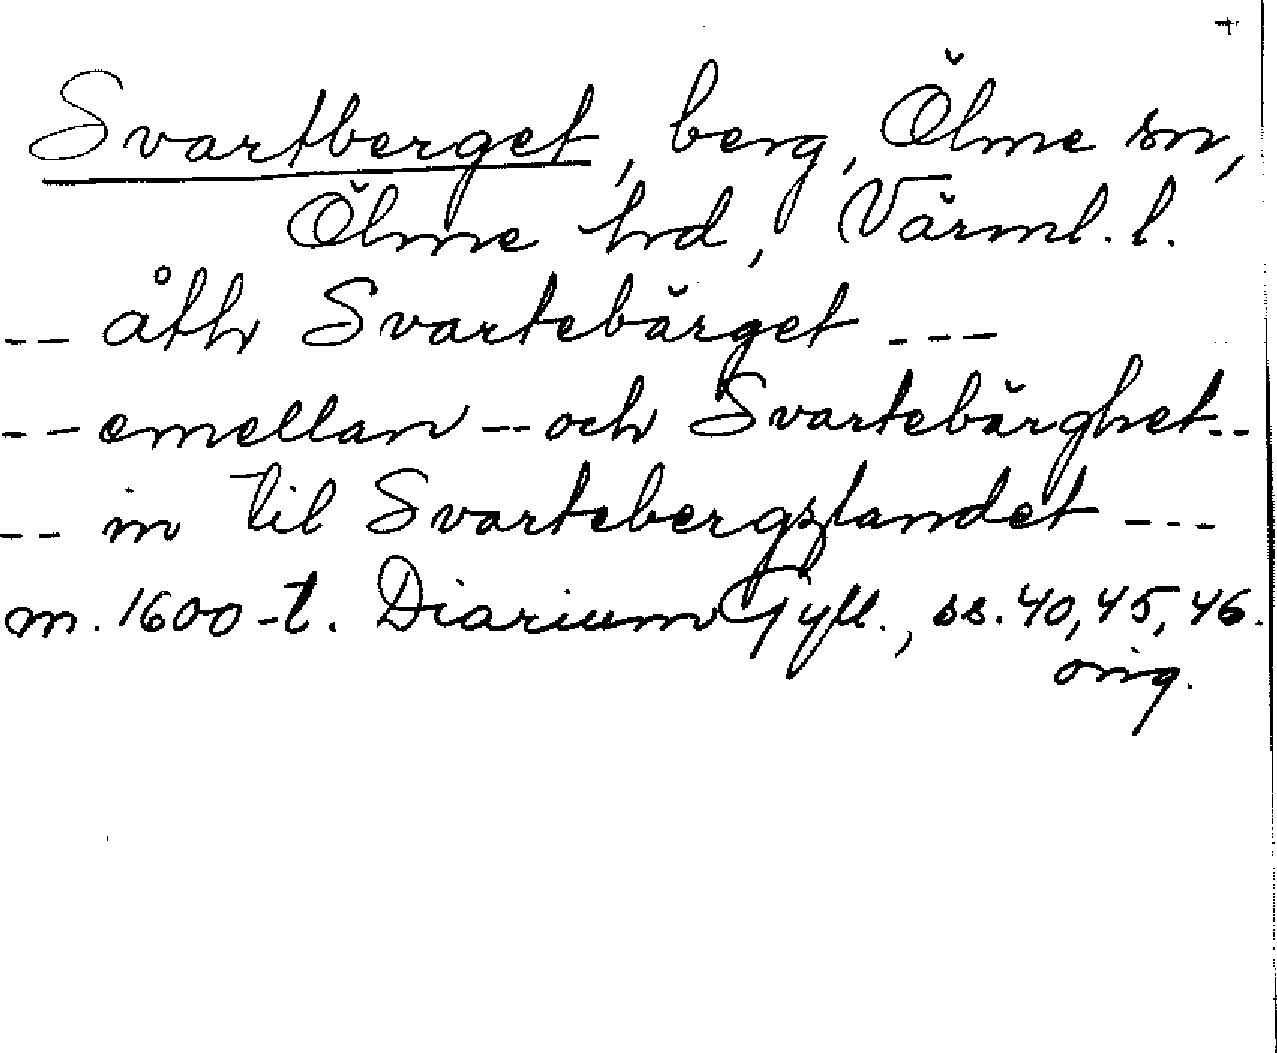 Svartberget, berg, Ölme sn,
Ölme hd, Värml. l.
-- åth Svartebärget ---
-- emellan -- och Svartebärghet --
-- in til Svartebergzlandet ---
m. 1600-t. Diarium Gyll., ss. 40, 45, 46.
orig.